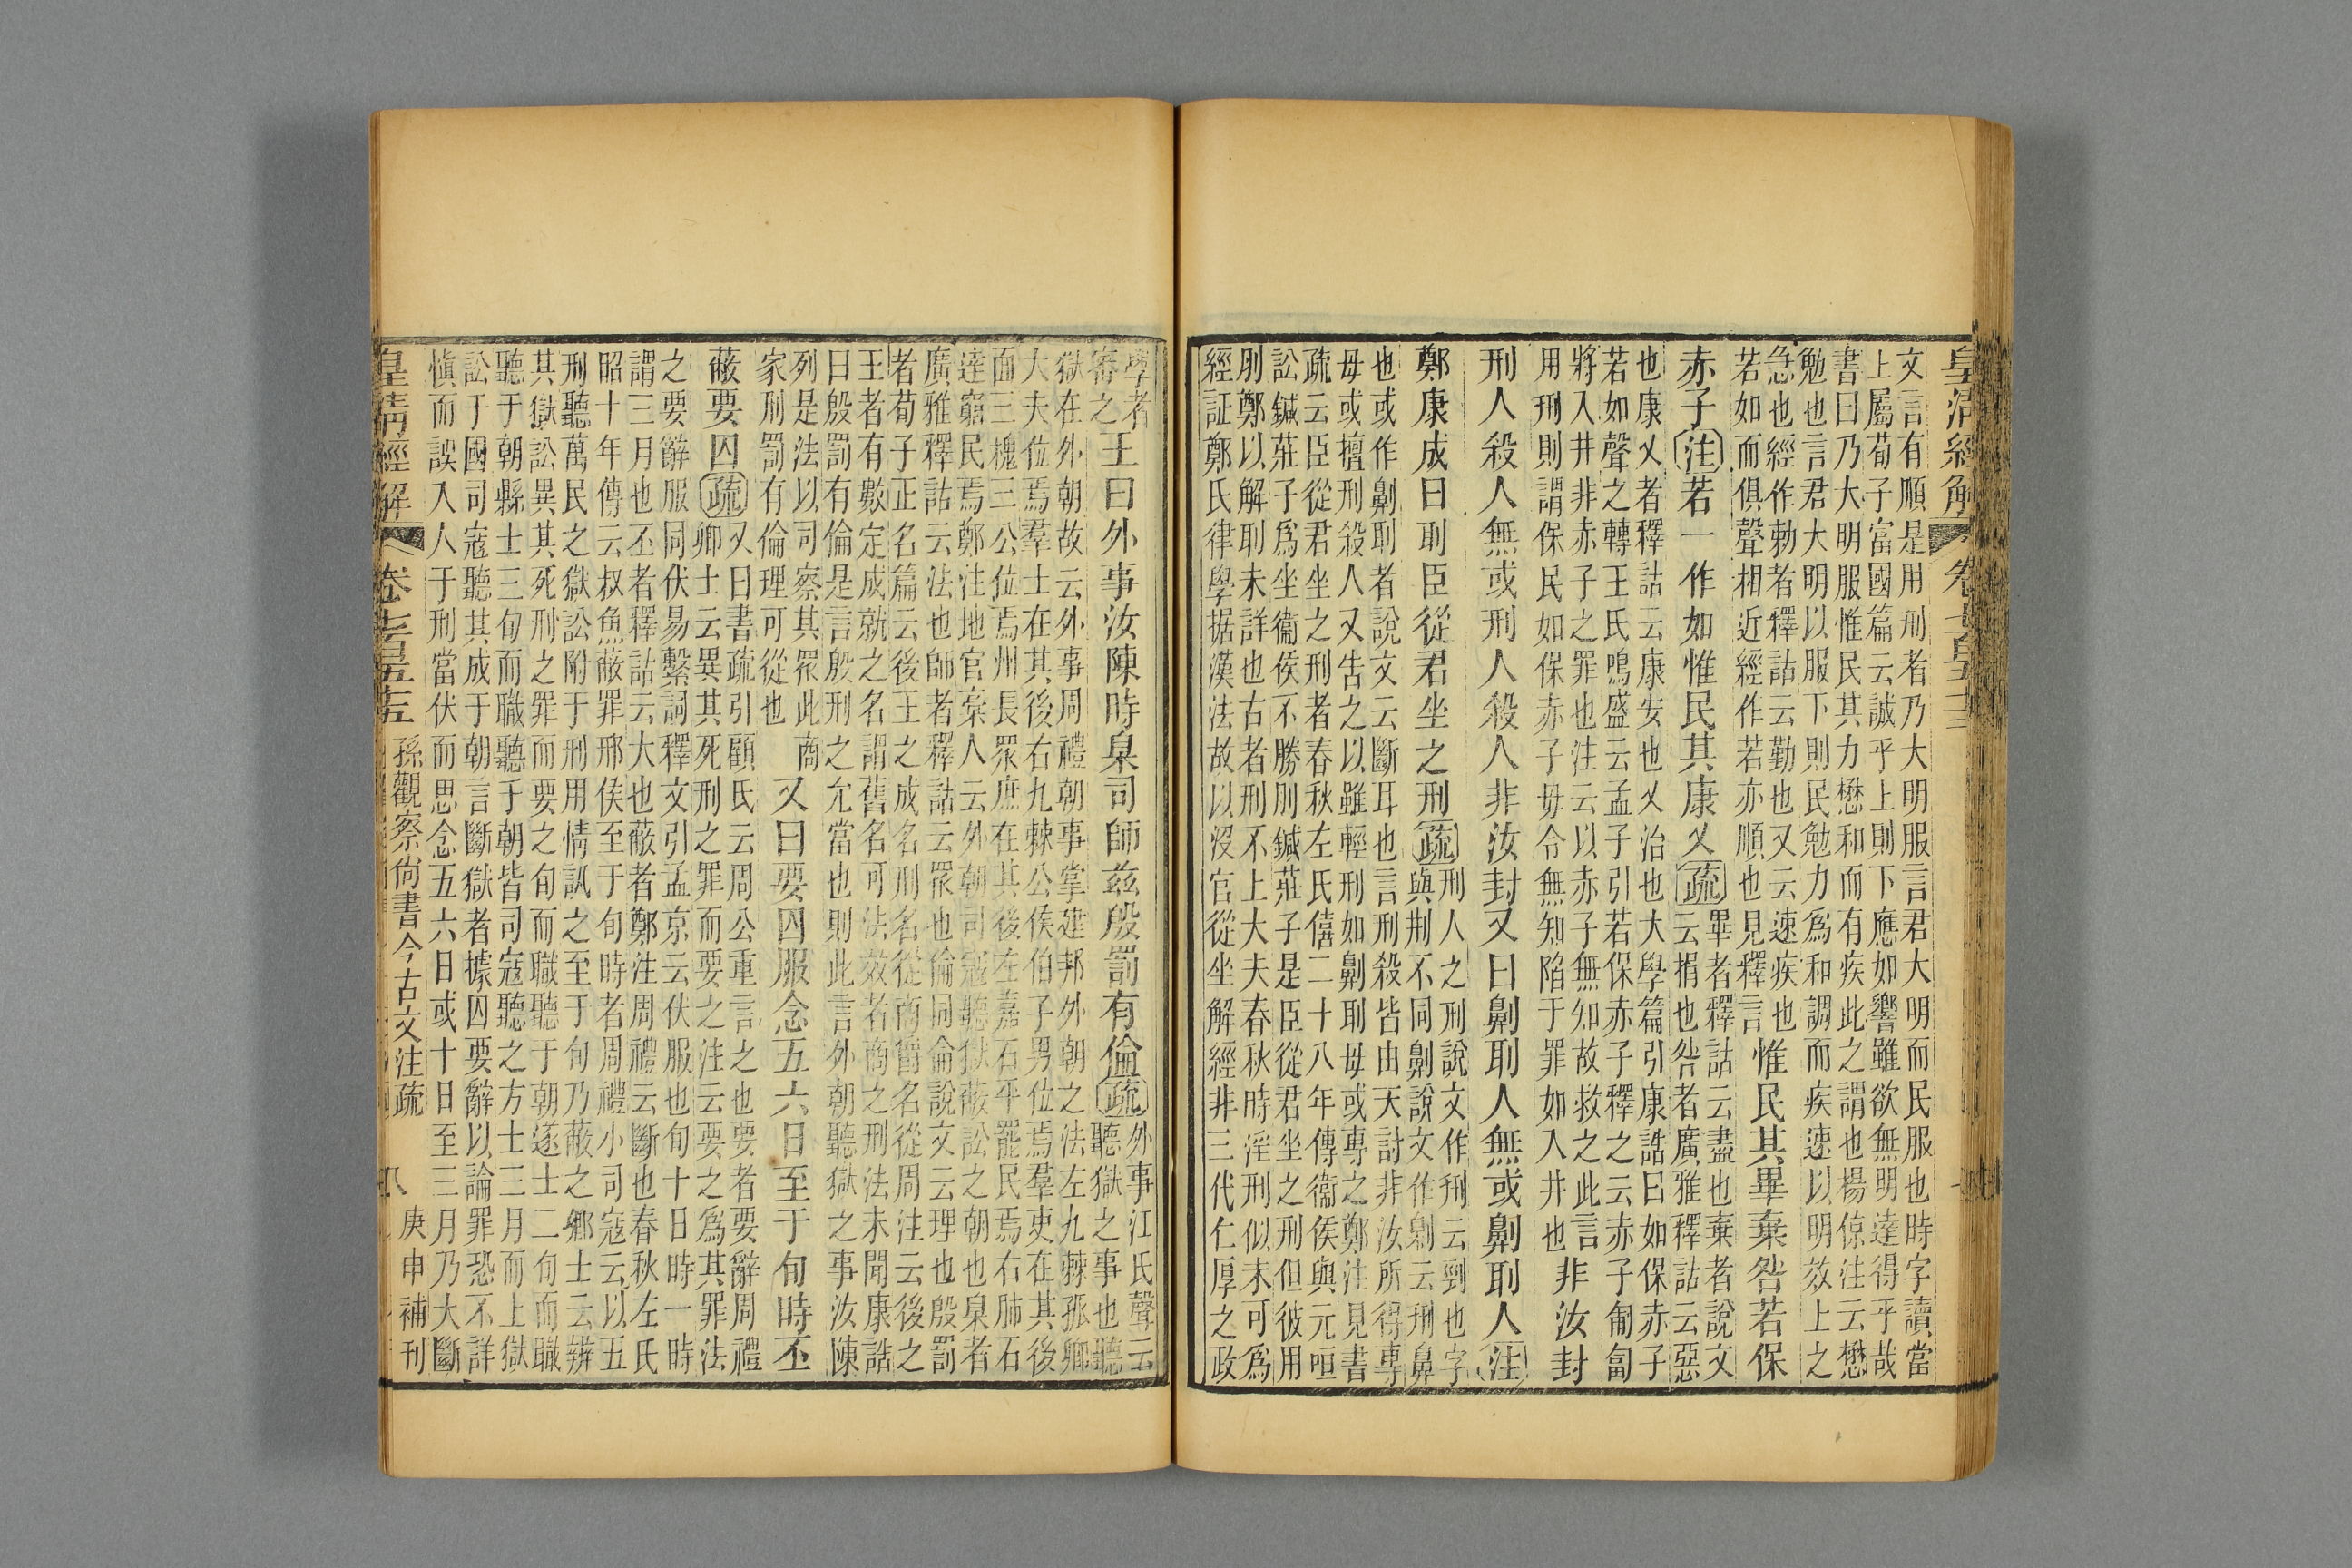 皇清經解 卷七百五十五
文言有順是用刑者乃大明服言君大明而民服也時字讀當
上屬荀子富國篇云誠乎上則下應如響雖欲無明達得乎哉
書曰乃大明服惟民其力懋和而有疾此之謂也楊倞注云懋
勉也言君大明以服下則民勉力為和調而疾速以明效上之
急也經作勅者釋詁云勤也又云速疾也
若如而俱聲相近經作若亦順也見釋言
惟民其畢棄咎若保
赤子注若一作如惟民其康乂疏
畢者釋詁云盡也棄者說文
云捐也咎者廣雅釋詁云惡
也康乂者釋詁云康安也乂治也大學篇引康誥曰如保赤子
若如聲之轉王氏鳴盛云孟子引若保赤子釋之云赤子匍匐
將入井非赤子之罪也注云以赤子無知故救之此言
用刑則謂保民如保赤子毋令無知陷于罪如入井也
非汝封
刑人殺人無或刑人殺人非汝封又曰劓刵人無或劓刵人注
鄭康成曰刵臣從君坐之刑疏
刑人之刑說文作㓝云剄也字
與荆不同劓說文作劓云刖鼻
也或作劓刵者說文云斷耳也言刑殺皆由天討非汝所得專
毋或擅刑殺人又告之以雖輕刑如劓刵毋或專之鄭注見書
疏云臣從君坐之刑者春秋左氏僖二十八年傳衞侯與元咺
訟鍼莊子為坐衞侯不勝刖鍼莊子是臣從君坐之刑但彼用
刖鄭以解刵未詳也古者刑不上大夫春秋時淫刑似未可為
經証鄭氏律學据漢法故以沒官從坐解經非三代仁厚之政
學者
審之
王曰外事汝陳時臬司師茲殷罰有倫疏
外事江氏聲云
聽獄之事也聽
獄在外朝故云外事周禮朝事掌建邦外朝之法左九棘孤卿
大夫位焉羣士在其後右九棘公侯伯子男位焉羣吏在其後
面三槐三公位焉州長眾庶在其後左嘉石平罷民焉右肺石
達窮民焉鄭注地官槀人云外朝司寇聽獄蔽訟之朝也臬者
廣雅釋詁云法也師者釋詁云眾也倫同侖說文云理也殷罰
者荀子正名篇云後王之成名刑名從商爵名從周注云後之
王者有數定成就之名謂舊名可法效者商之刑法未聞康誥
曰殷罰有倫是言殷刑之允當也則此言外朝聽獄之事汝陳
列是法以司察其眾此商
家刑罰有倫理可從也
又曰要囚服念五六日至于旬時丕
蔽要囚疏
又曰書疏引顧氏云周公重言之也要者要辭周禮
鄉士云異其死刑之罪而要之注云要之為其罪法
之要辭服同伏易繫詞釋文引孟京云伏服也旬十日時一時
謂三月也丕者釋詁云大也蔽者鄭注周禮云斷也春秋左氏
昭十年傳云叔魚蔽罪邢侯至于旬時者周禮小司寇云以五
刑聽萬民之獄訟附于刑用情訊之至于旬乃蔽之鄉士云辨
其獄訟異其死刑之罪而要之旬而職聽于朝遂士二旬而職
聽于朝縣士三旬而職聽于朝皆司寇聽之方士三月而上獄
訟于國司寇聽其成于朝言斷獄者據囚要辭以論罪恐不詳
慎而誤入人于刑當伏而思念五六日或十日至三月乃大斷
皇清經解 卷七百五十五 孫觀察尚書今古文注疏 八 庚申補刊